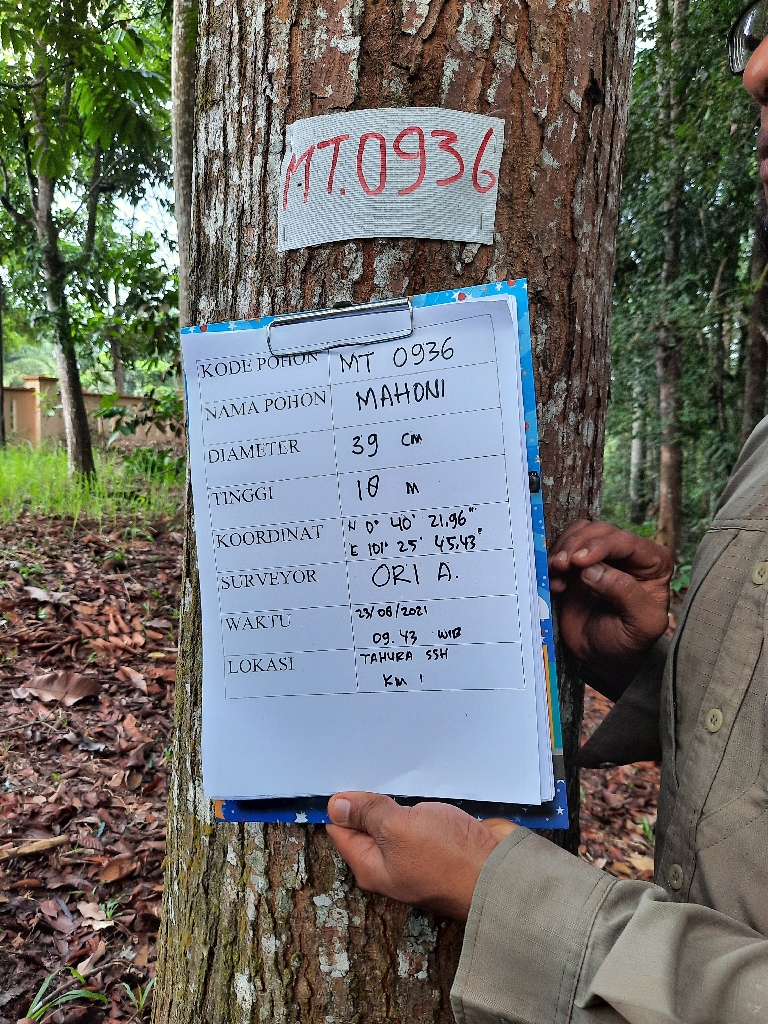 MT.0936
KODE POHON MT 0936
NAMA POHON MAHONI
DIAMETER 39 cm
TINGGI 10 m
KOORDINAT N 0° 40' 21,96"
E 101° 25' 45,43"
SURVEYOR ORI A.
WAKTU 23/08/2021
09.43 WIB
LOKASI TAHURA SSH
KM 1